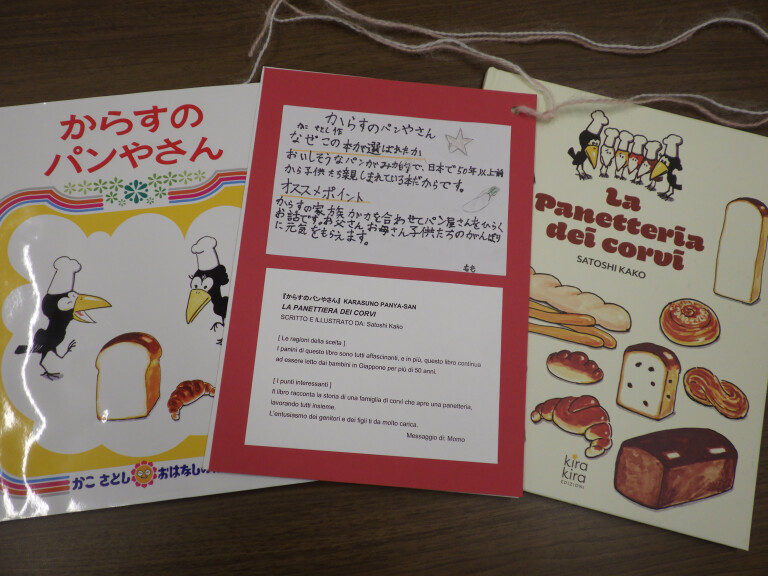 からすの
パンやさん
かこ さとし おはなしの
からすのパンやさん
かこ さとし 作
なぜこの本が選ばれたか
おいしそうなパンがみ力的で、日本で50年以上前
から子供たち親しまれている本だからです。
オススメポイント
からすの家族が力を合わせてパン屋さんをひらく
お話です。お父さん、お母さん、子供たちのがんばり
に元気をもらえます。
もも
『からすのパンやさん』 KARASUNO PANYA-SAN
LA PANETTIERA DEI CORVI
SCRITTO E ILLUSTRATO DA: Satoshi Kako
[ Le ragioni della scelta ]
I panini di questo libro sono tutti affascinanti, e in più, questo libro continua
ad essere letto dai bambini in Giappone per più di 50 anni.
[ I punti interessanti ]
Il libro racconta la storia di una famiglia di corvi che apre una panetteria,
lavorando tutti insieme.
L'entusiasmo dei genitori e dei figli ti da molto carica.
Messaggio di: Momo
La
Panetteria
dei corvi
SATOSHI KAKO
kira
kira
EDIZIONI